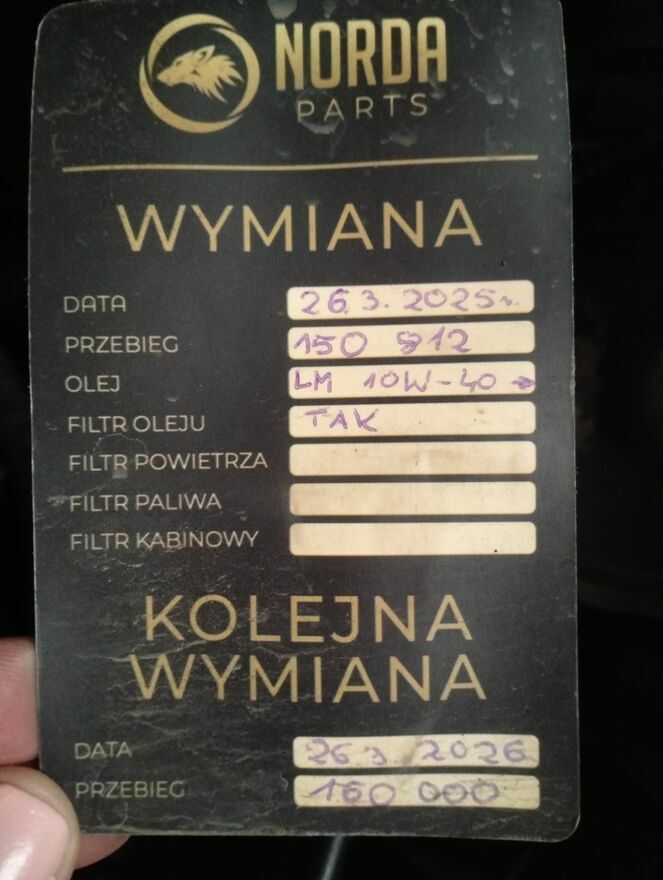 NORDA
PARTS
WYMIANA
DATA 26.3.2025r.
PRZEBIEG 150 912
OLEJ LM 10W-40 →
FILTR OLEJU TAK
FILTR POWIETRZA
FILTR PALIWA
FILTR KABINOWY
KOLEJNA
WYMIANA
DATA 26 3 2026
PRZEBIEG 160 000